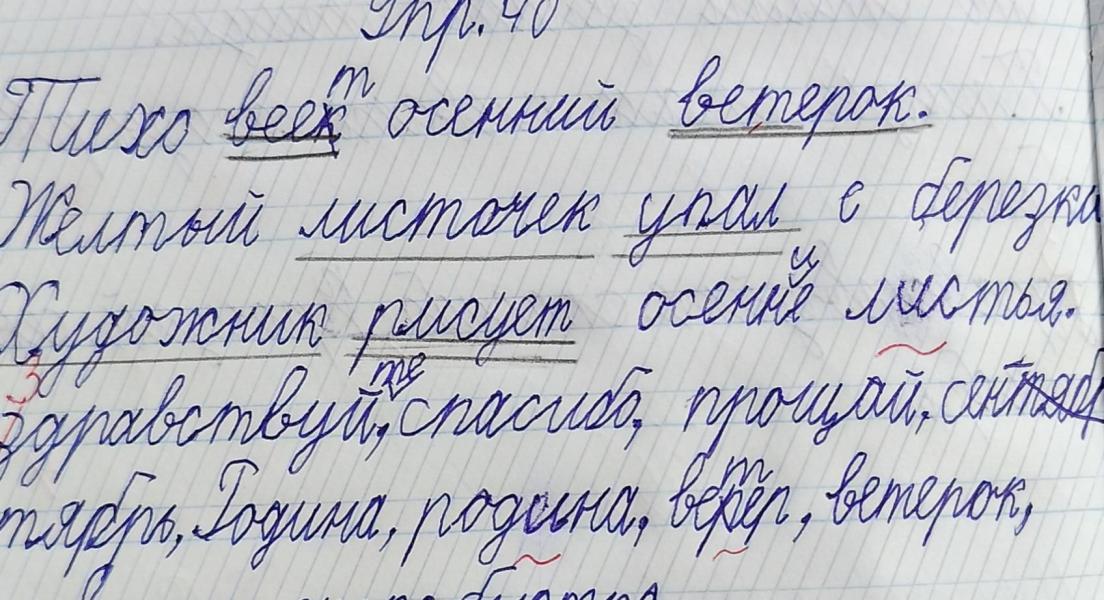 Упр. 40
Тихо веет осенний ветерок.
Желтый листочек упал с березка
Художник рисует осенние листья.
Здравствуйте, спасибо, прощай, сен
тябрь, Родина, родина, ветер, ветерок,